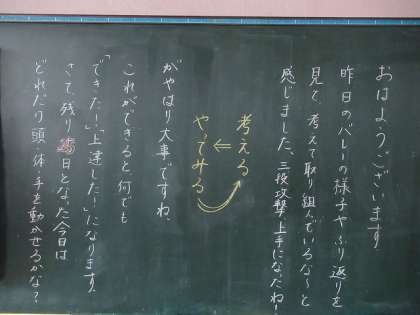 おはようございます
昨日のバレーの様子やふり返りを
見て、考えて取り組んでいるな〜と
感じました。三段攻撃、上手になったね！
考える
⇐
やってみる
がやはり大事ですね。
これができると何でも
「できたー！」「上達したー！」になります。
さて、残り 日となった今日は
どれだけ頭・体・手を動かせるかな？